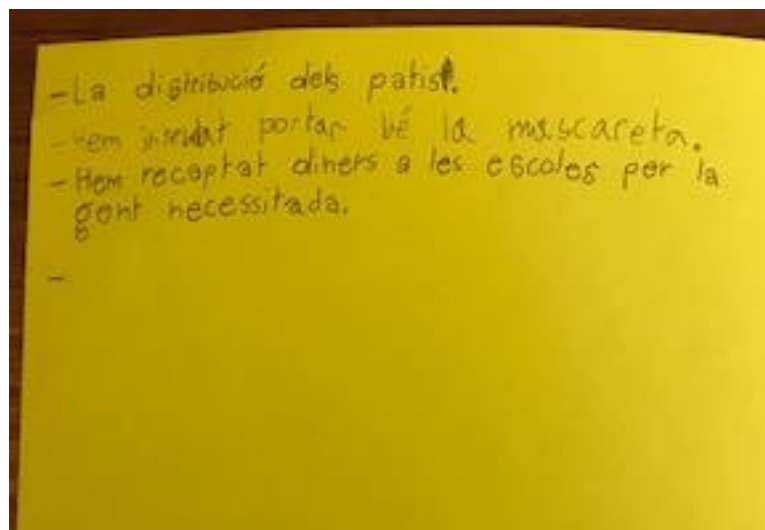 - La distribució dels patis.
- Hem intentat portar bé la mascareta.
- Hem recaptat diners a les escoles per la
gent necessitada.
-